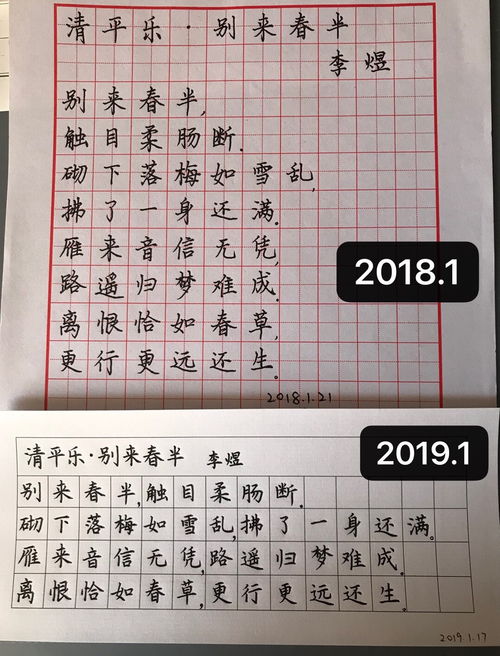 清平乐·别来春半
李煜
别来春半,
触目柔肠断.
砌下落梅如雪乱,
拂了一身还满.
雁来音信无凭,
路遥归梦难成.
离恨恰如春草,
更行更远还生.
2018.1
2018.1.21
2019.1
清平乐·别来春半 李煜
别来春半,触目柔肠断.
砌下落梅如雪乱,拂了一身还满.
雁来音信无凭,路遥归梦难成.
离恨恰如春草,更行更远还生.
2019.1.17